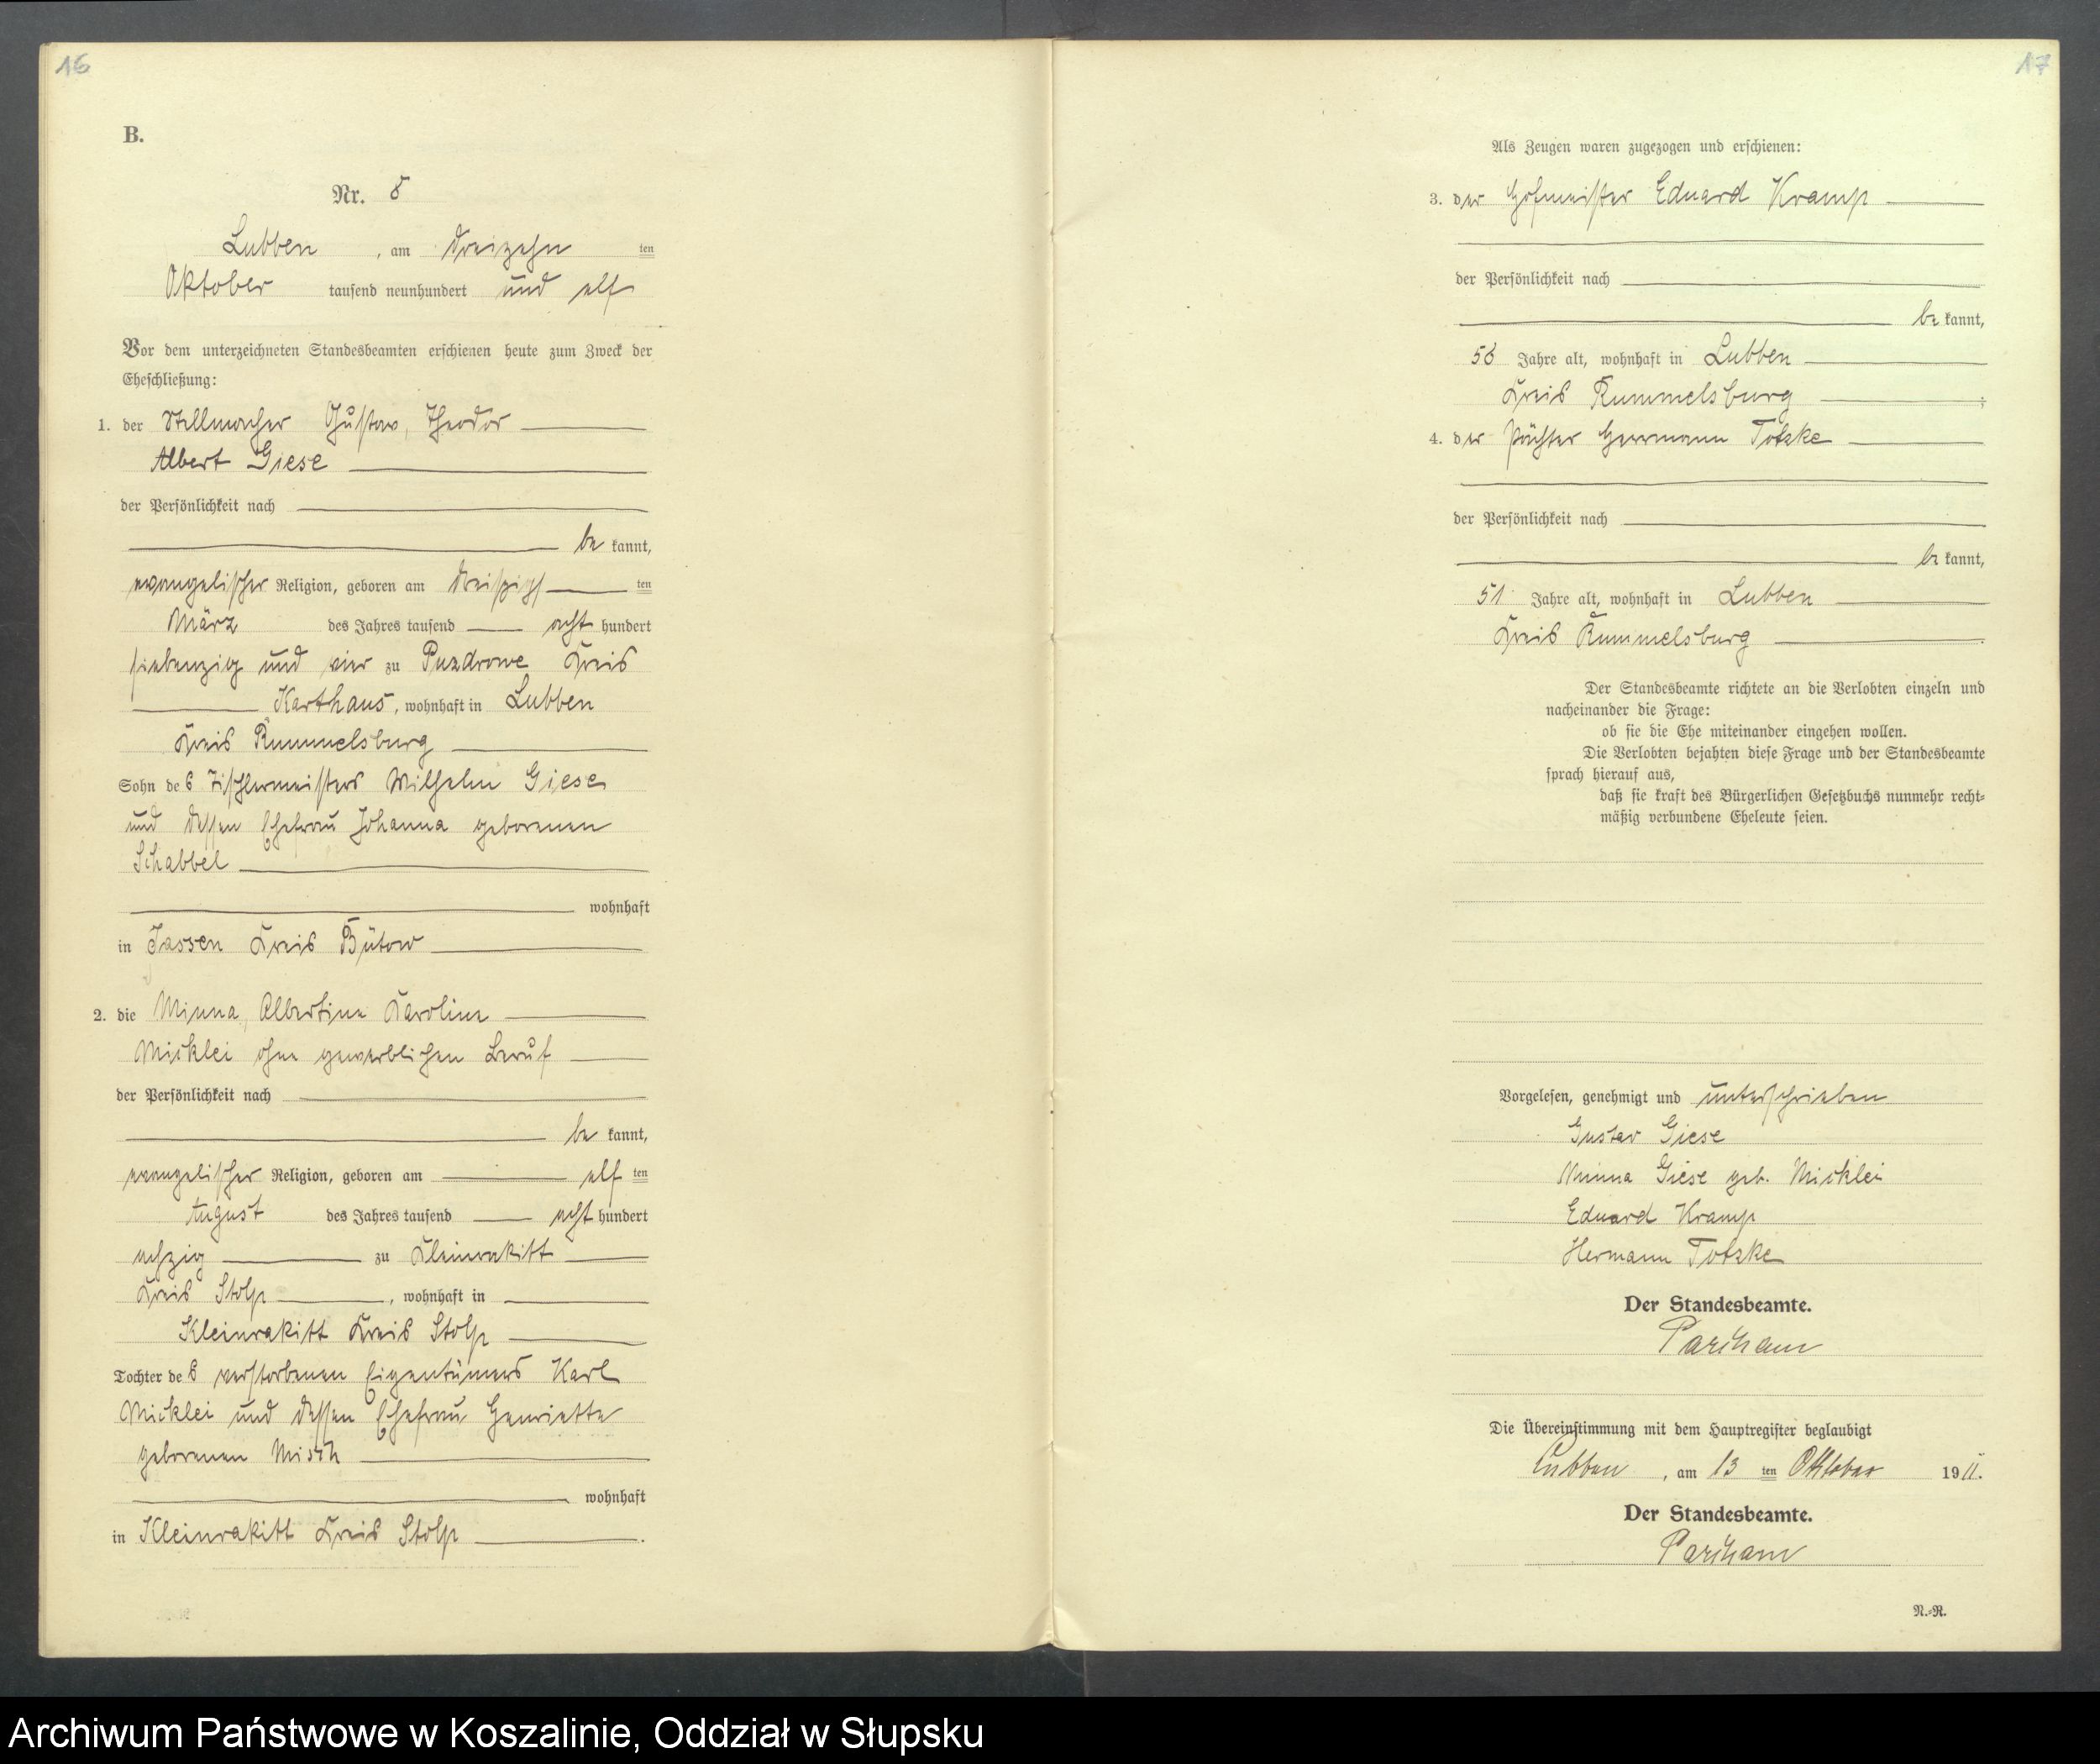 16
B.
Nr. 8
Lubben, am dreizehn ten
Oktober tausend neunhundert und elf
Vor dem unterzeichneten Standesbeamten erschienen heute zum Zweck der
Eheschließung:
1. der Stellmacher Gustav, Theodor
Albert Giese
der Persönlichkeit nach
be kannt,
evangelischer Religion, geboren am dreißigs ten
März des Jahres tausend acht hundert
siebenzig und vier zu Puzdrowe Kreis
Karthaus, wohnhaft in Lubben
Kreis Rummelsburg
Sohn des Tischlermeisters Wilhelm Giese
und dessen Ehefrau Johanna geborenen
Schabbel
wohnhaft
in Jassen Kreis Bütow
2. die Minna, Albertine Karoline
Micklei ohne gewerblichen Beruf
der Persönlichkeit nach
be kannt,
evangelischer Religion, geboren am elf ten
August des Jahres tausend acht hundert
achzig zu Kleinrakitt
Kreis Stolp, wohnhaft in
Kleinrakitt Kreis Stolp
Tochter des verstorbenen Eigentümers Karl
Micklei und dessen Ehefrau Henriette
geborenen Misch
wohnhaft
in Kleinrakitt Kreis Stolp.
17
Als Zeugen waren zugezogen und erschienen:
3. der Hofmeister Eduard Kramp
der Persönlichkeit nach
be kannt,
58 Jahre alt, wohnhaft in Lubben
Kreis Rummelsburg;
4. der Pächter Herrmann Totzke
der Persönlichkeit nach
be kannt,
51 Jahre alt, wohnhaft in Lubben
Kreis Rummelsburg.
Der Standesbeamte richtete an die Verlobten einzeln und
nacheinander die Frage:
ob sie die Ehe miteinander eingehen wollen.
Die Verlobten bejahten diese Frage und der Standesbeamte
sprach hierauf aus,
daß sie kraft des Bürgerlichen Gesetzbuchs nunmehr recht-
mäßig verbundene Eheleute seien.
Vorgelesen, genehmigt und unterschrieben
Gustav Giese
Minna Giese geb. Micklei
Eduard Kramp
Hermann Totzke
Der Standesbeamte.
Die Übereinstimmung mit dem Hauptregister beglaubigt
Lubben, am 13 ten Oktober 1911.
Der Standesbeamte.
N.-R.
Archiwum Państwowe w Koszalinie, Oddział w Słupsku